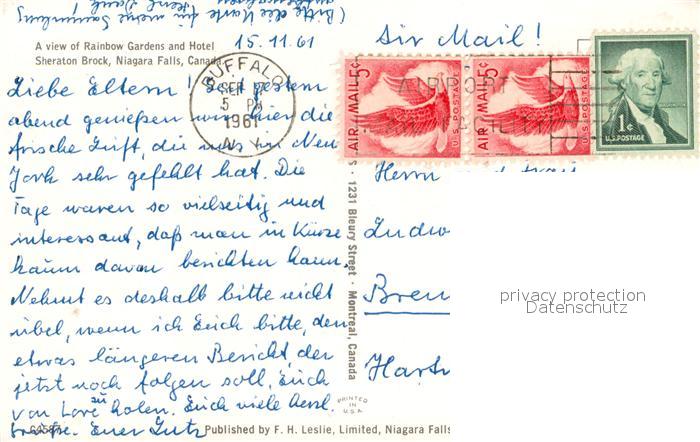 (Bitte die Karte für meine Sammlung
A view of Rainbow Gardens and Hotel
Sheraton Brock, Niagara Falls, Canada.
15.11.61
Air Mail!
BUFFALO
SEP
5 PM
1961
N.Y.
AIR MAIL 5¢
U.S. POSTAGE
AIR MAIL 5¢
U.S. POSTAGE
1¢
U.S. POSTAGE
AIRPORT
Liebe Eltern! Seit gestern
abend genießen wir hier die
frische Luft, die uns in New
York sehr gefehlt hat. Die
Tage waren so vielseitig und
interessant, daß man in Kürze
kaum davon berichten kann.
Nehmt es deshalb bitte nicht
übel, wenn ich Euch bitte, den
etwas längeren Bericht, der
jetzt noch folgen soll, Euch
von Lore zu holen. Euch viele herzl.
Grüße. Euer Lutz
Herrn
Ludw
Brem
Hart
1231 Bleury Street · Montreal, Canada
PRINTED
IN
U.S.A.
Published by F. H. Leslie, Limited, Niagara Falls
privacy protection
Datenschutz